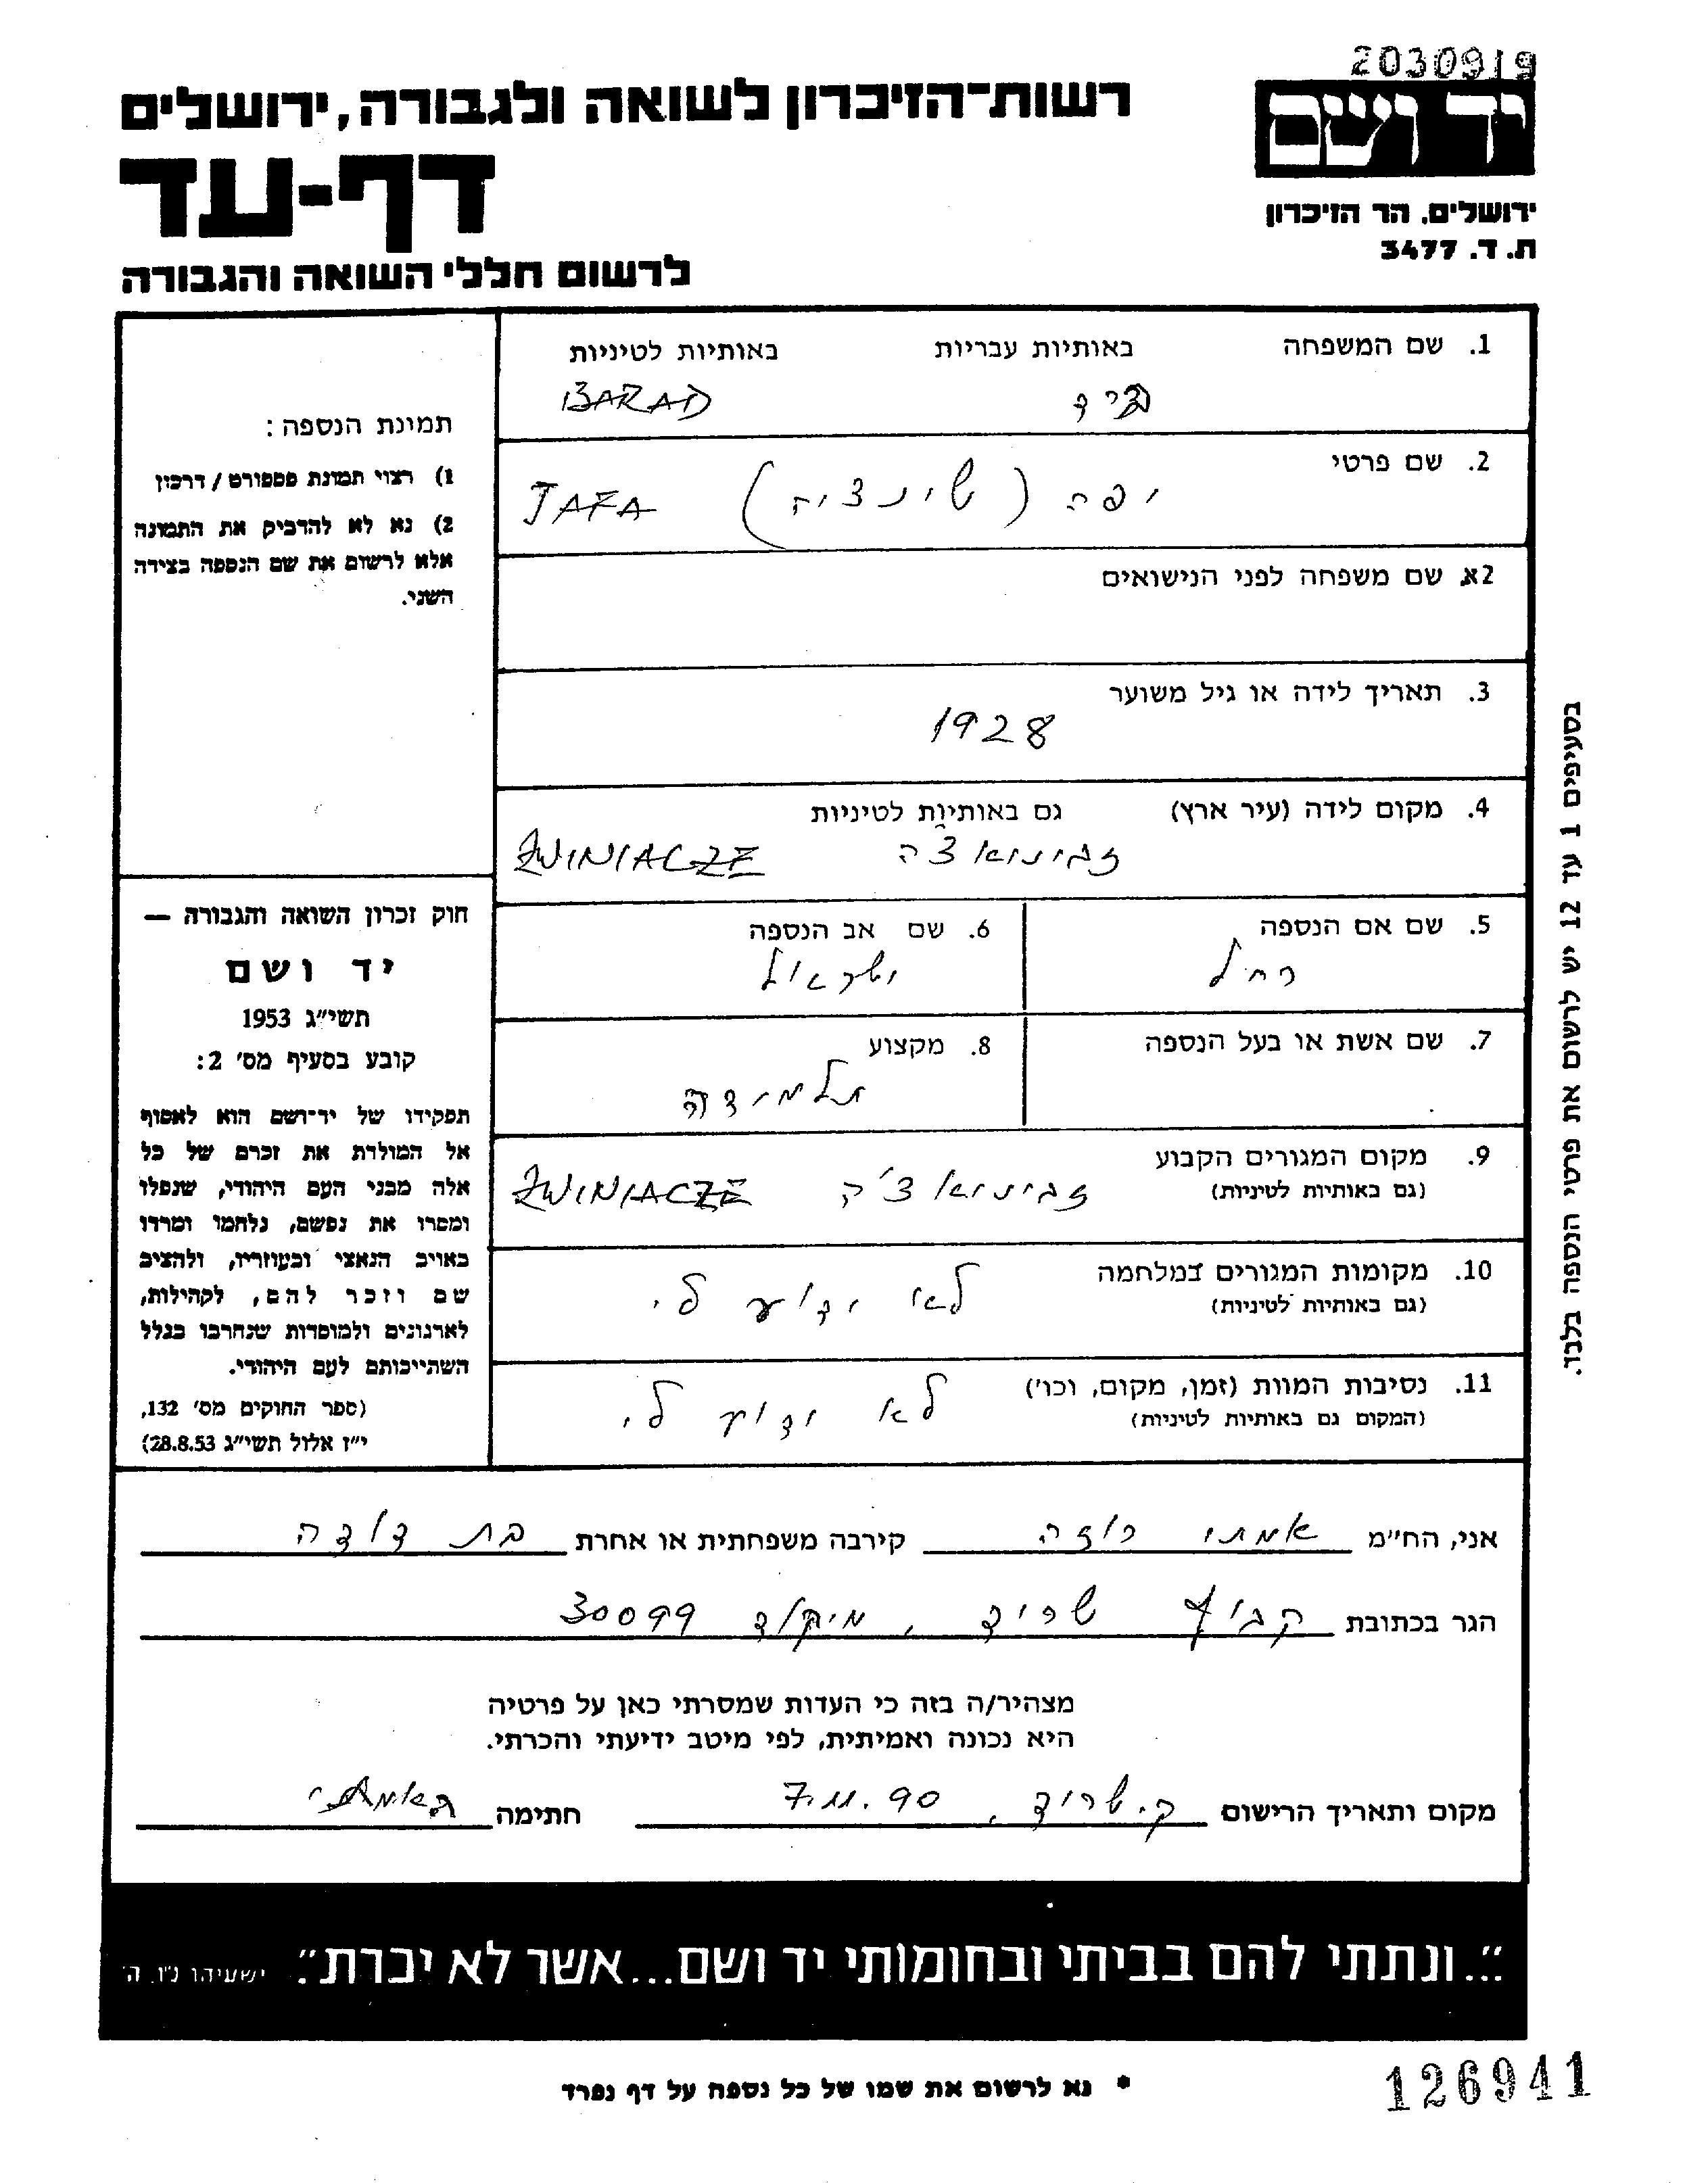 2030919
יד ושם
רשות־הזיכרון לשואה ולגבורה, ירושלים
דף-עד
לרשום חללי השואה והגבורה
ירושלים, הר הזיכרון
ת.ד. 3477
1. שם המשפחה באותיות עבריות באותיות לטיניות
ברד BARAD
2. שם פרטי
יפה (שינציה) JAFA
2א. שם משפחה לפני הנישואים
3. תאריך לידה או גיל משוער
1928
4. מקום לידה (עיר ארץ) גם באותיות לטיניות
זבינואצ'ה ZWINIACZE
5. שם אם הנספה
רחל
6. שם אב הנספה
ישראל
7. שם אשת או בעל הנספה
8. מקצוע
תלמידה
9. מקום המגורים הקבוע
(גם באותיות לטיניות)
זבינואצ'ה ZWINIACZE
10. מקומות המגורים במלחמה
(גם באותיות לטיניות)
לא ידוע לי.
11. נסיבות המוות (זמן, מקום, וכו')
(המקום גם באותיות לטיניות)
לא ידוע לי.
תמונת הנספה:
1) רצוי תמונת פספורט / דרכון
2) נא לא להדביק את התמונה
אלא לרשום את שם הנספה בצידה
השני.
חוק זכרון השואה והגבורה —
יד ושם
תשי"ג 1953
קובע בסעיף מס' 2:
תפקידו של יד־ושם הוא לאסוף
אל המולדת את זכרם של כל
אלה מבני העם היהודי, שנפלו
ומסרו את נפשם, נלחמו ומרדו
באויב הנאצי ובעוזריו, ולהציב
שם וזכר להם, לקהילות,
לארגונים ולמוסדות שנחרבו בגלל
השתייכותם לעם היהודי.
(ספר החוקים מס' 132,
י"ז אלול תשי"ג 28.8.53)
בסעיפים 1 עד 12 יש לרשום את פרטי הנספה בלבד.
אני, הח"מ אמתי רוזה קירבה משפחתית או אחרת בת דודה
הגר בכתובת קבוץ שריד, מיקוד 30099
מצהיר/ה בזה כי העדות שמסרתי כאן על פרטיה
היא נכונה ואמיתית, לפי מיטב ידיעתי והכרתי.
מקום ותאריך הרישום ק. שריד, 7.11.90 חתימה
"...ונתתי להם בביתי ובחומותי יד ושם...אשר לא יכרת". ישעיהו נ"ו, ה'
* נא לרשום את שמו של כל נספה על דף נפרד
126941